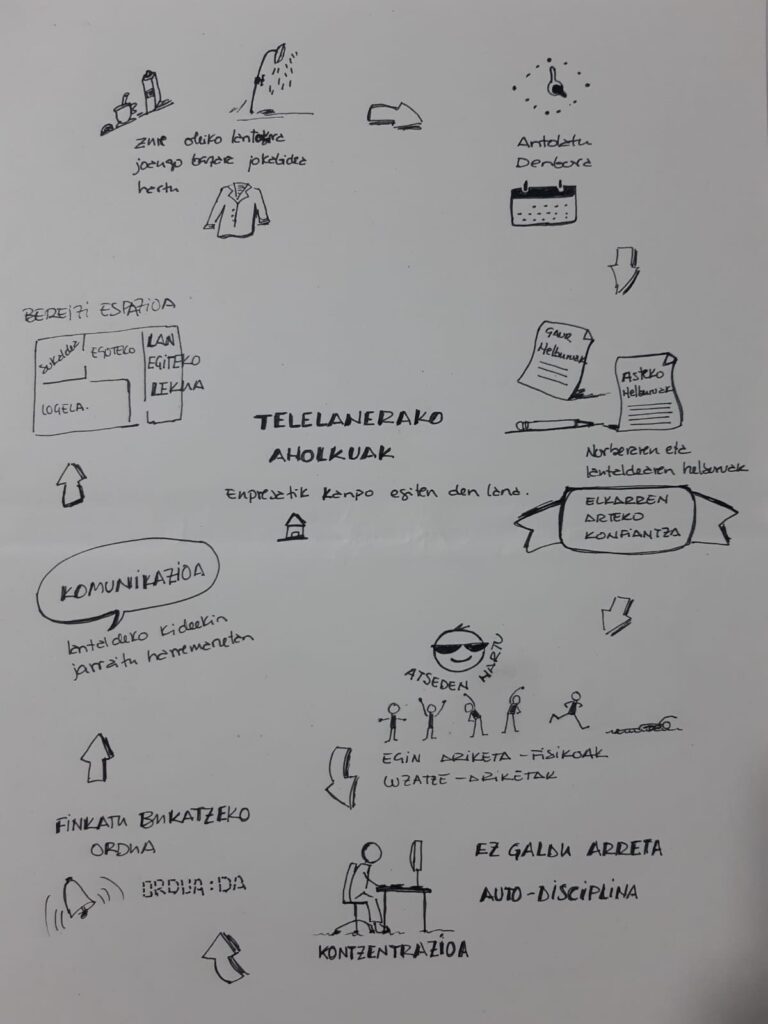 zure ohiko lantokira
joango bazare jokabidea
hartu
Antolatu
Denbora
GAUR
Helburuak
ASTEKO
Helburuak
Norberaren eta
lantaldearen helburuak
ELKARREN
ARTEKO
KONFIANTZA
ATSEDEN HARTU
EGIN ARIKETA-FISIKOAK
LUZATZE-ARIKETAK
EZ GALDU ARRETA
AUTO-DISCIPLINA
KONTZENTRAZIOA
FINKATU BUKATZEKO
ORDUA
ORDUA:DA
KOMUNIKAZIOA
lantaldeko kideekin
jarraitu harremanetan
BEREIZI ESPAZIOA
Sukaldea
EGOTEKO
LAN
EGITEKO
LEKUA
LOGELA.
TELELANERAKO
AHOLKUAK
Enpresatik kanpo egiten den lana.